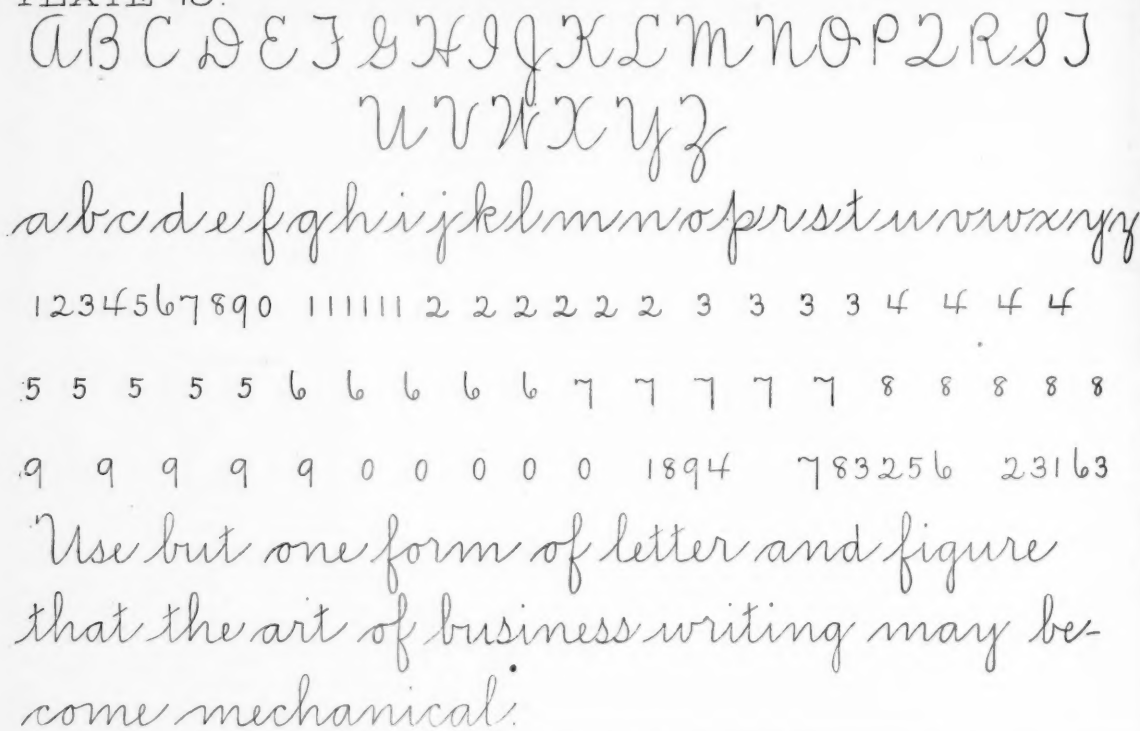 PLATE
A B C D E F G H I J K L M N O P Q R S T
U V W X Y Z
a b c d e f g h i j k l m n o p r s t u v w x y z
1234567890 111111 2 2 2 2 2 2 3 3 3 3 4 4 4 4
5 5 5 5 5 6 6 6 6 6 7 7 7 7 7 8 8 8 8 8
9 9 9 9 9 0 0 0 0 0 1894 783256 23163
Use but one form of letter and figure
that the art of business writing may be-
come mechanical.